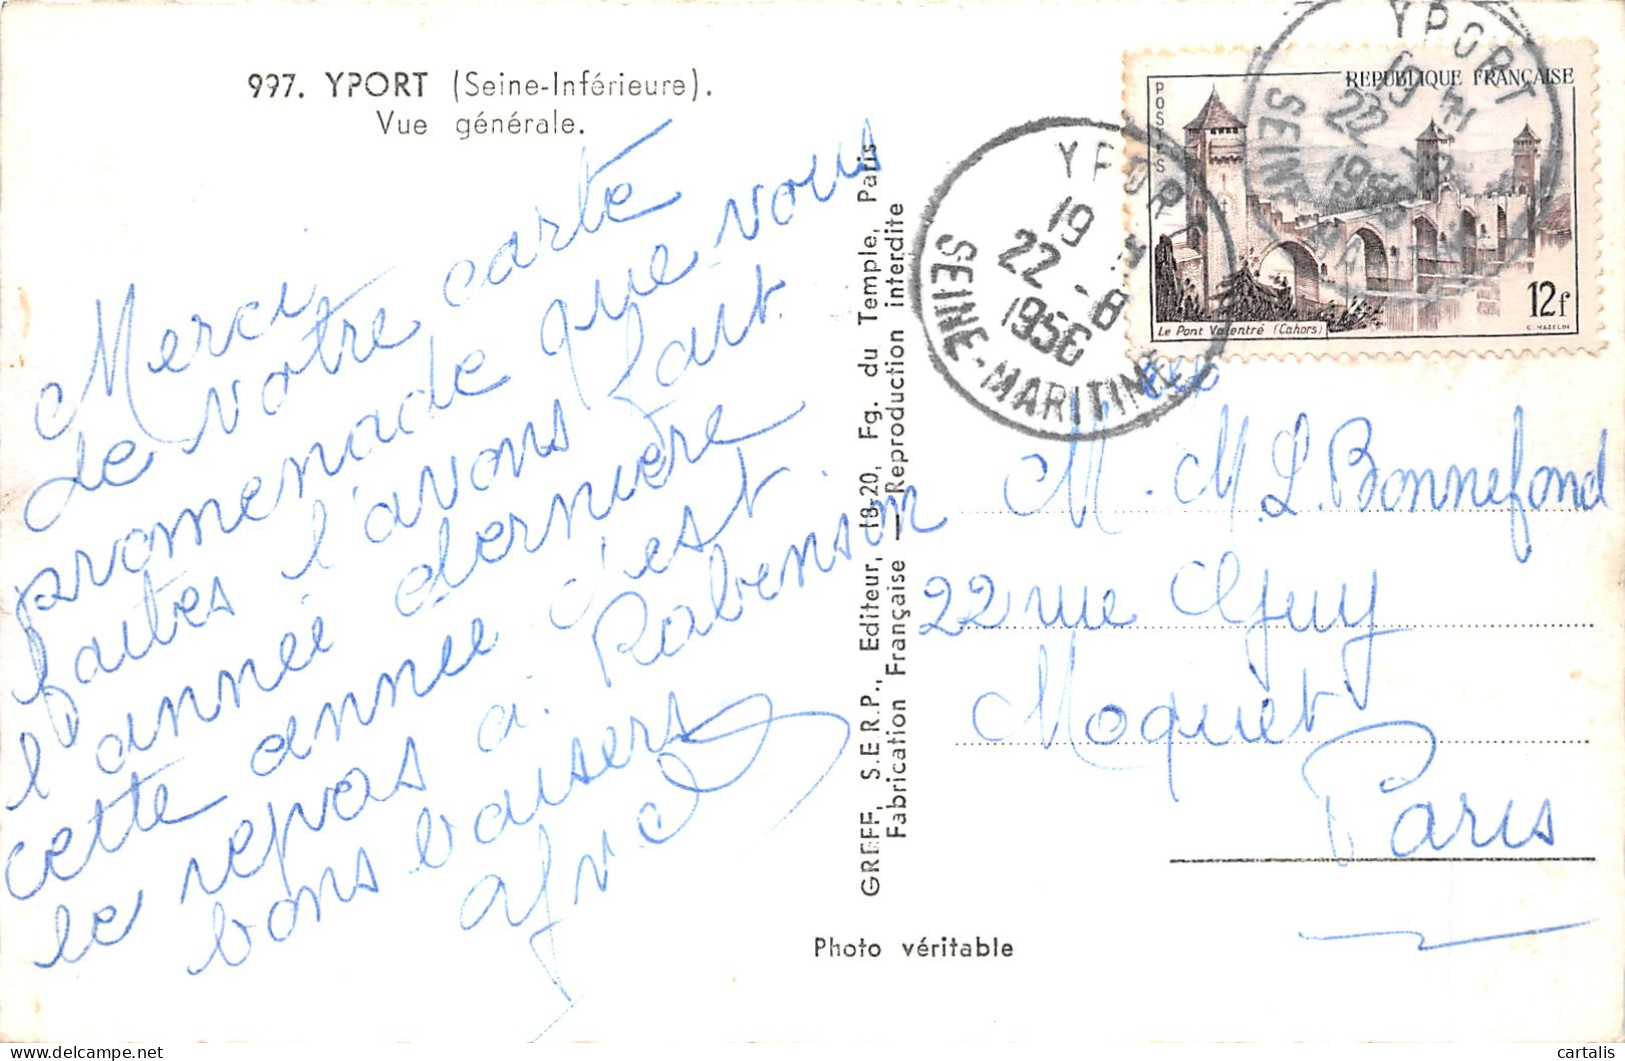 997. YPORT (Seine-Inférieure).
Vue générale.
Merci
de votre carte
promenade que vous
faites l'avons fait
l'année dernière
cette année c'est
le repos a. Robenson.
bons baisers
GREFF, S.E.R.P., Editeur, 18-20, Fg. du Temple, Paris
Fabrication Française — Reproduction interdite
Photo véritable
YPORT
19 H
22 -8
1956
SEINE-MARITIME
YPORT
19 H
22 -8
1956
SEINE-MARITIME
POSTES
REPUBLIQUE FRANÇAISE
12f
Le Pont Valentré (Cahors)
C. HAZELIN
M. M. L. Bonnefond
22 rue Guy
Moquet
Paris
cartalis